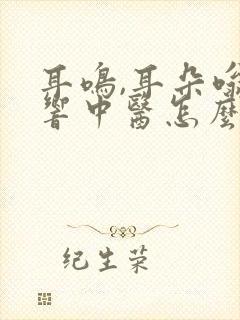 耳鳴,耳朵嗡
響中醫怎麼
纪生荣